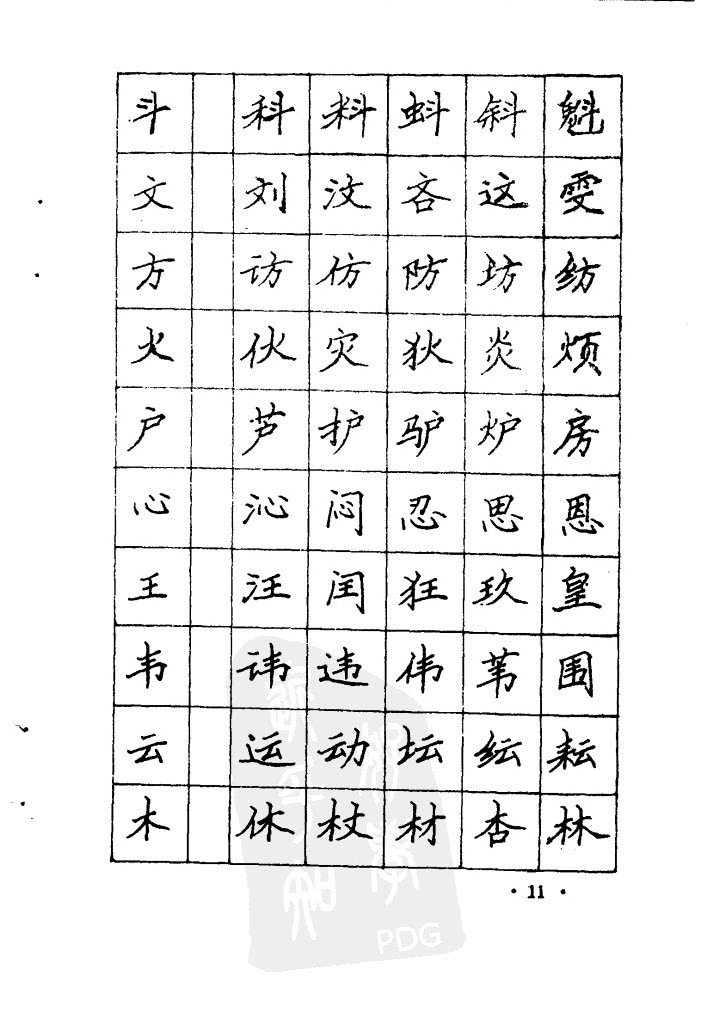 斗 科 料 蚪 斜 魁
文 刘 汶 吝 这 雯
方 访 仿 防 坊 纺
火 伙 灾 狄 炎 烦
户 芦 护 驴 炉 房
心 沁 闷 忍 思 恩
王 汪 闰 狂 玖 皇
韦 讳 违 伟 苇 围
云 运 动 坛 纭 耘
木 休 杖 材 杏 林
· 11 ·
PDG